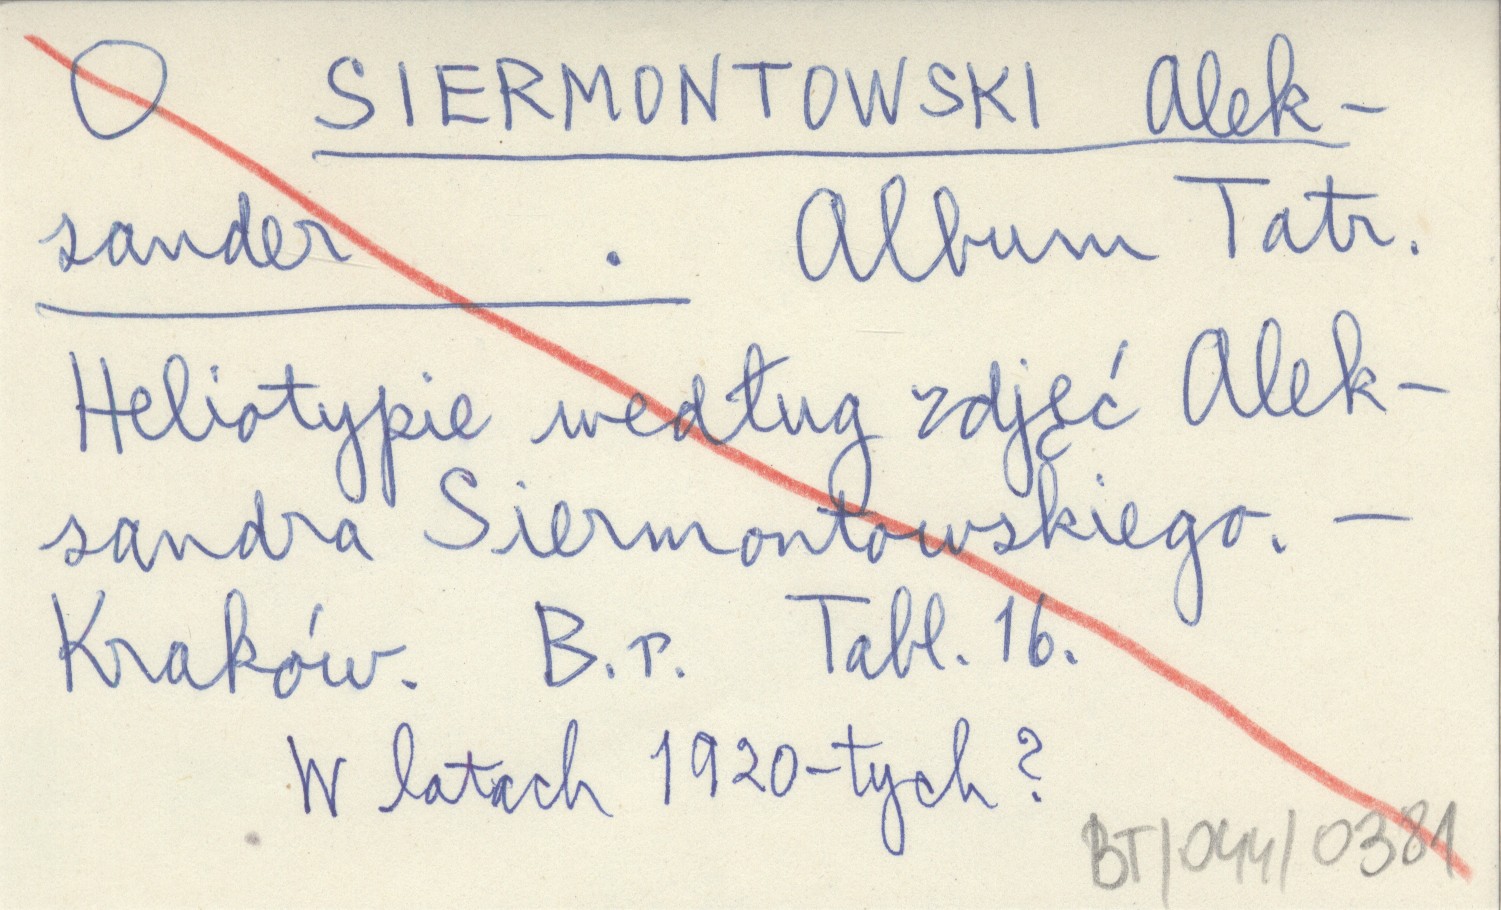 O SIERMONTOWSKI Alek-
sander . Album Tatr.
Heliotypie według zdjęć Alek-
sandra Siermontowskiego. —
Kraków. B.r. Tabl. 16.
W latach 1920-tych?
BT/044/0381